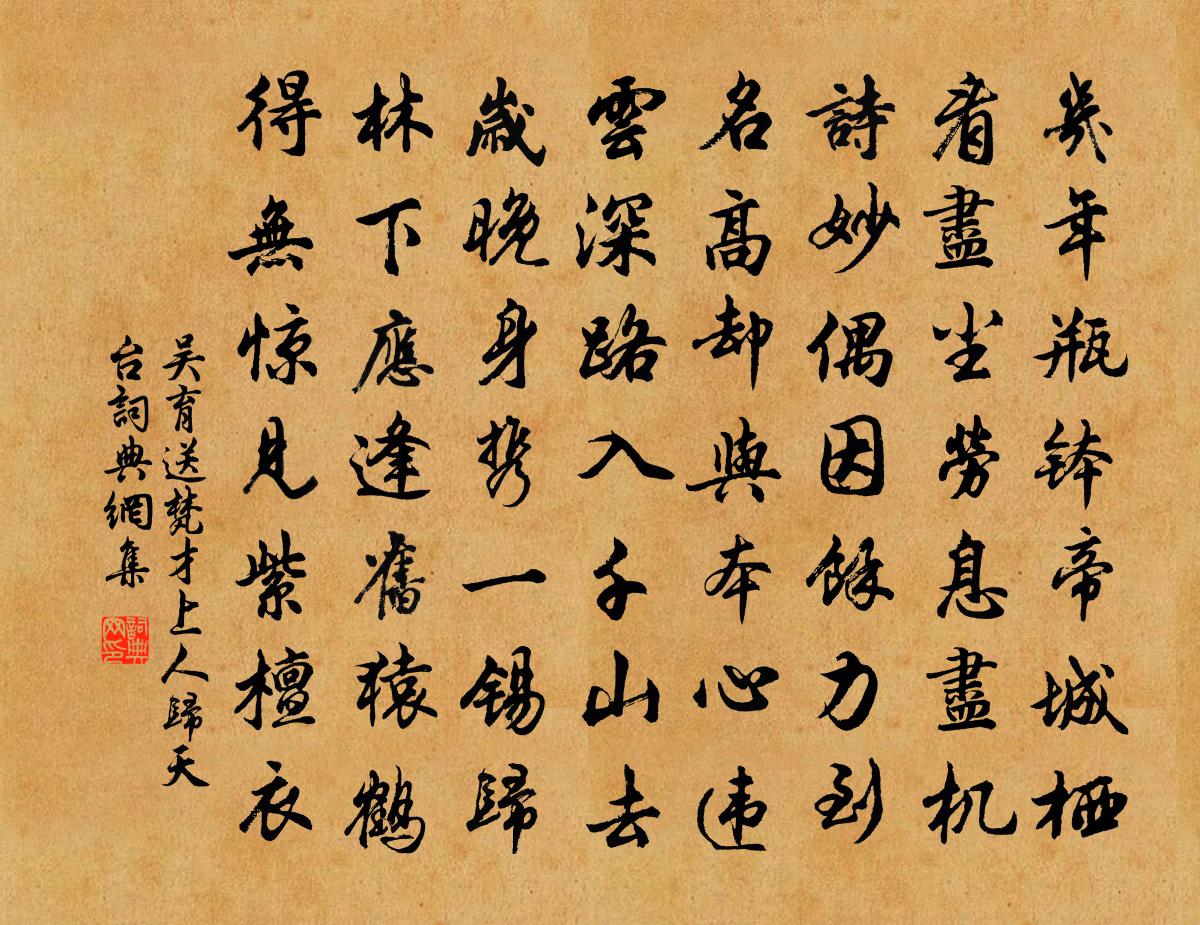 幾年瓶鉢帝城栖
看盡塵勞息盡机
詩妙偶因餘力到
名高却與本心違
雲深路入千山去
歲晚身携一錫歸
林下應逢舊猿鶴
得無惊見紫檀衣
吴育送梵才上人歸天
台詞典網集
詞典
网印